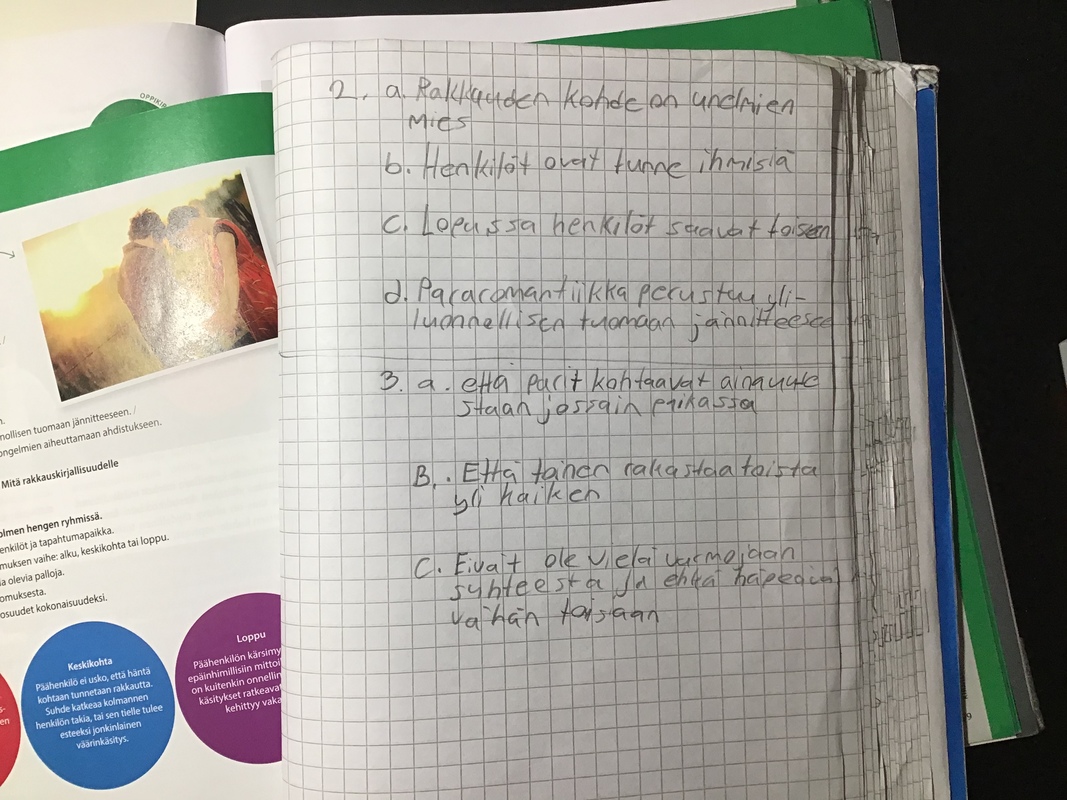 OPPIKIR
nollisen tuomaan jännitteeseen. /
ongelmien aiheuttamaan ahdistukseen.
Mitä rakkauskirjallisuudelle
olmen hengen ryhmissä.
enkilöt ja tapahtumapaikka.
muksen vaihe: alku, keskikohta tai loppu.
a olevia palloja.
omuksesta.
osuudet kokonaisuudeksi.
Keskikohta
Päähenkilö ei usko, että häntä
kohtaan tunnetaan rakkautta.
Suhde katkeaa kolmannen
henkilön takia, tai sen tielle tulee
esteeksi jonkinlainen
väärinkäsitys.
Loppu
Päähenkilön kärsimy
epäinhimillisiin mittoi
on kuitenkin onnellin
käsitykset ratkeava
kehittyy vaka
2. a. Rakkauden kohde on unelmien
mies
b. Henkilöt ovat tunne ihmisiä
c. Lopussa henkilöt saavat toisen
d. Pararomantiikka perustuu yli-
luonnellisen tuomaan jännitteesee
3. a. että parit kohtaavat aina
staan jossain paikassa
B. Että toinen rakastaa toista
yli kaiken
C. Eivät ole vielä varmojaan
suhteesta ja ehkä häpeävä
vähän toisiaan